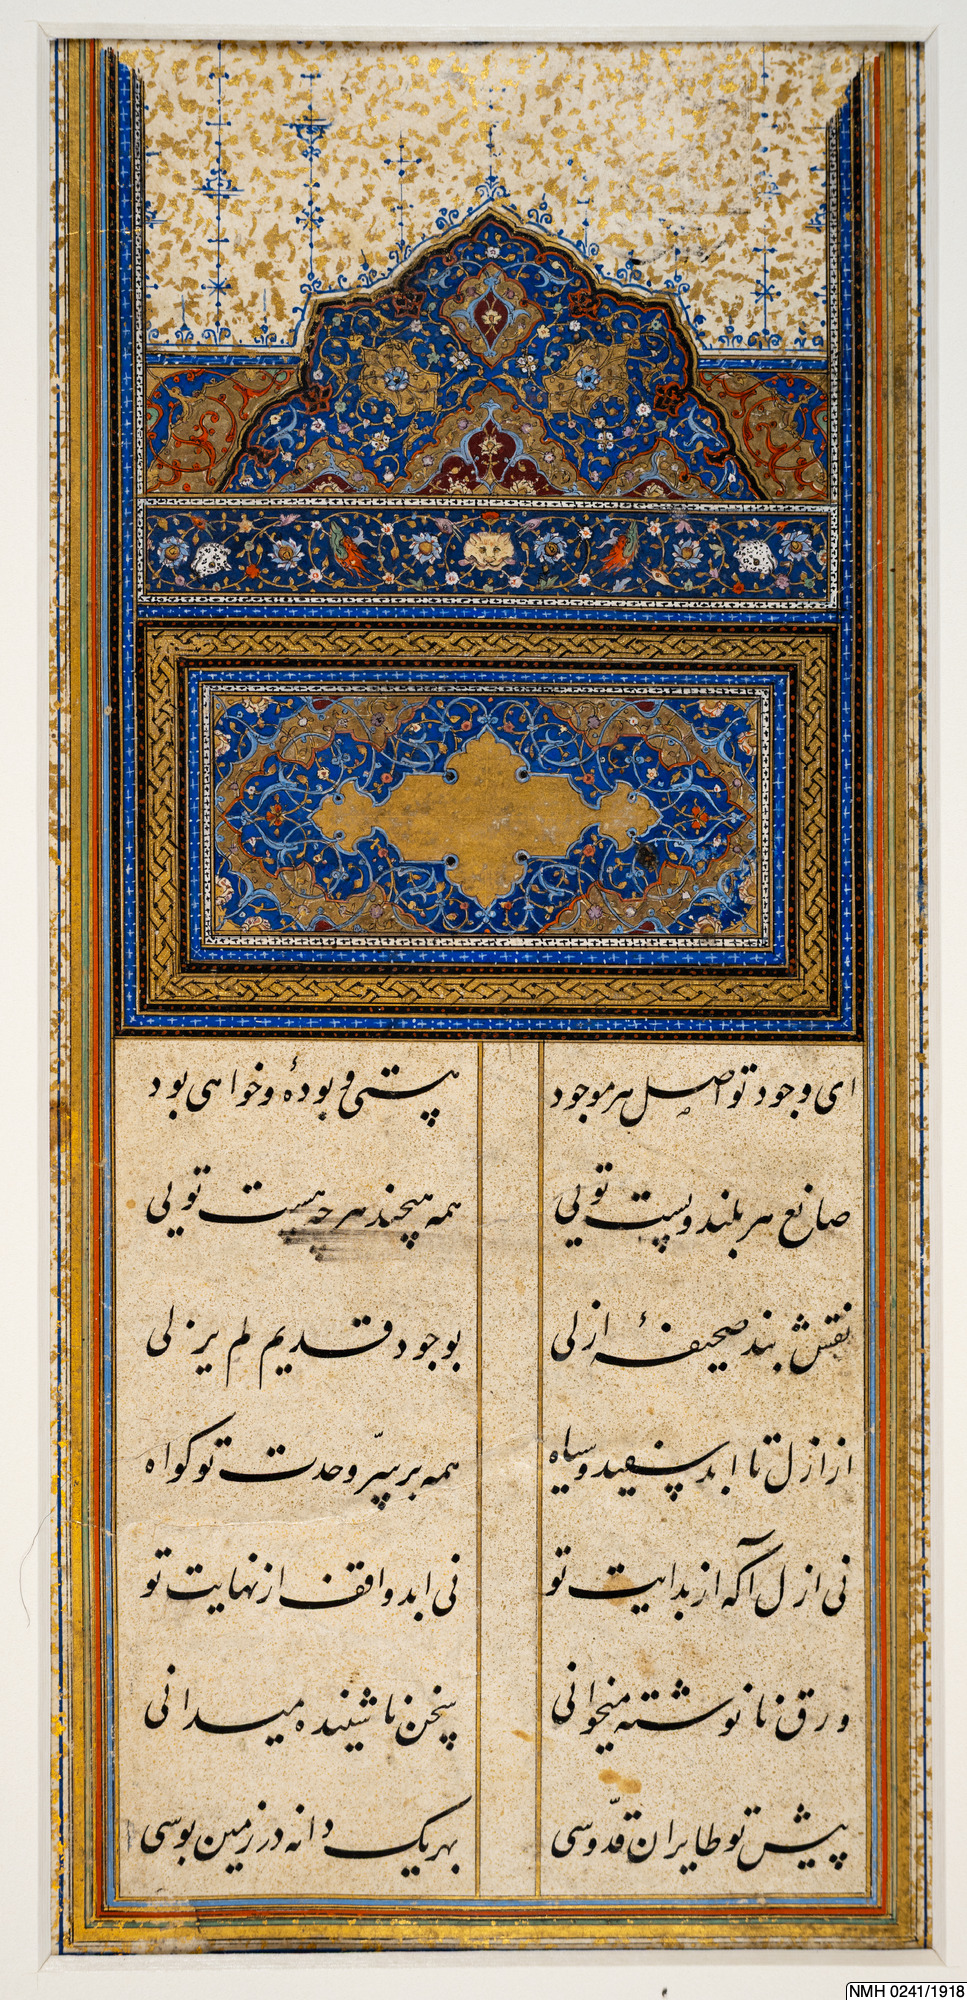 ای وجود تو اصل هر موجود
هستی و بودهٔ و خواهی بود
صانع هر بلند و پست تویی
همه هیچند هر چه هست تویی
نقش بند صحیفهٔ ازلی
بوجود قدیم لم یزلی
از ازل تا ابد سفید و سیاه
همه بر سرّ وحدت تو کواه
نی ازل آکه از بدایت تو
نی ابد واقف از نهایت تو
ورق نانوشته میخوانی
سخن ناشنیده میدانی
پیش تو طایران قدّوسی
بهر یک دانه در زمین بوسی
NMH 0241/1918